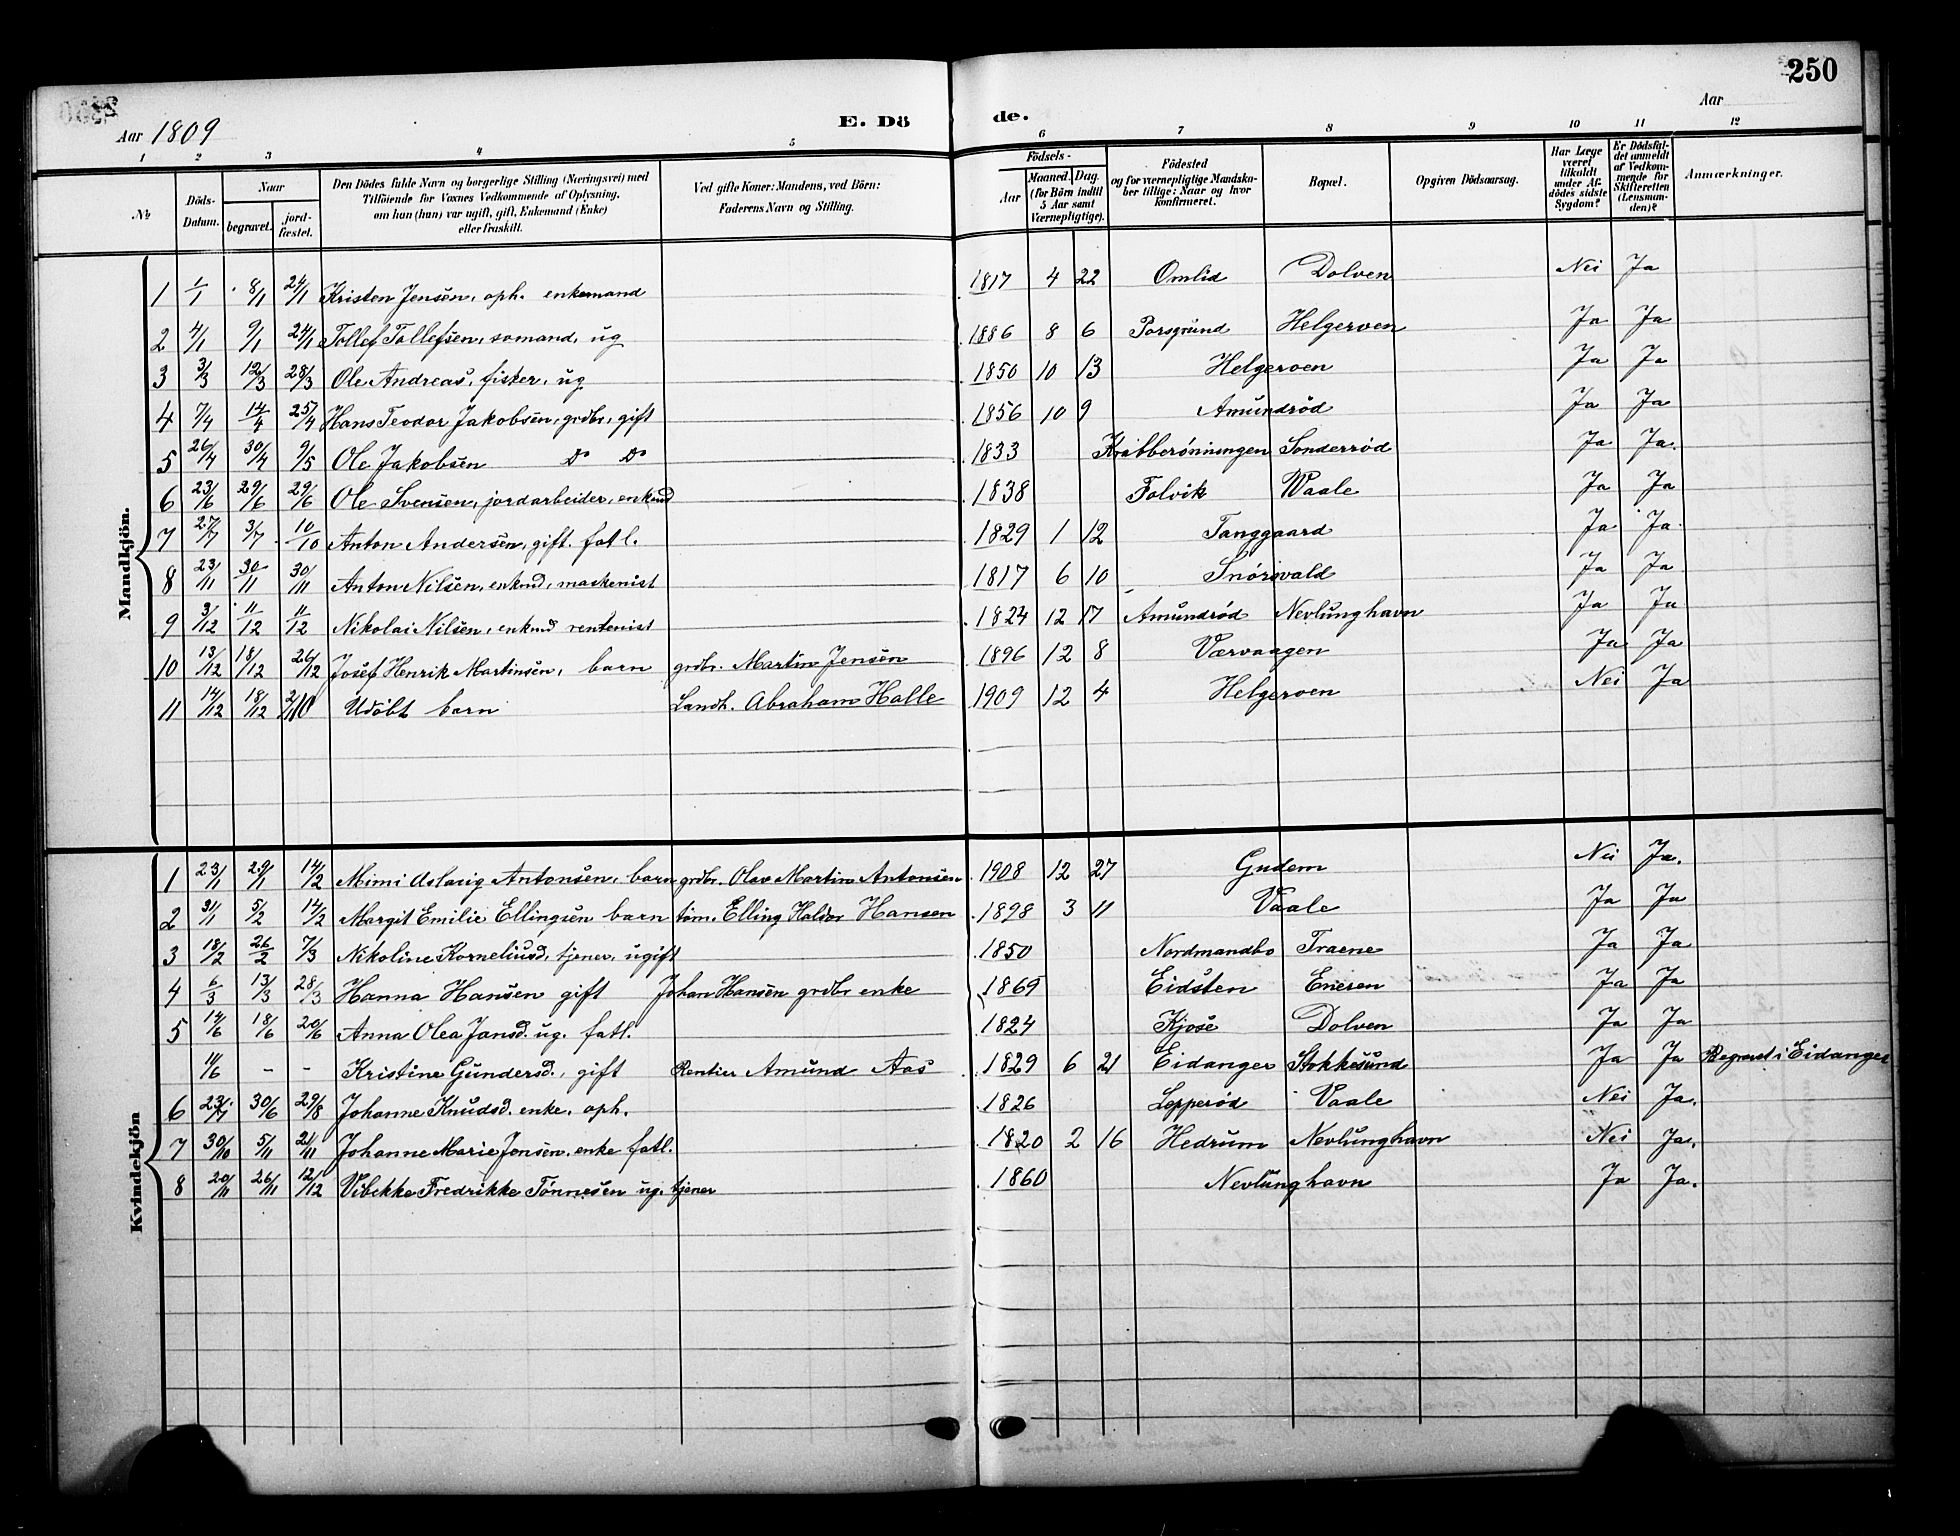 250
Aar 1809
E. Dö de.
Aar
1 2 3 4 5 6 7 8 9 10 11 12
No
Döds-Datum.
Naar
begravet.
jord-fæstet.
Den Dödes fulde Navn og borgerlige Stilling (Næringsvei) med
Tilföiende for Voxnes Vedkommende af Oplysning,
om han (hun) var ugift, gift, Enkemand (Enke)
eller fraskilt.
Ved gifte Koner: Mandens, ved Börn:
Faderens Navn og Stilling.
Födsels-
Aar
Maaned. Dag.
(for Börn indtil
5 Aar samt
Værnepligtige).
Födested
og for værnepligtige Mandska-
ber tillige: Naar og hvor
konfirmeret.
Bopæl.
Opgiven Dödsaarsag.
Har Læge
været
tilkaldt
under Af-
dödes sidste
Sygdom?
Er Dödsfal-
det anmeldt
af Vedkom-
mende for
Skifteretten
(Lensman-
den)?
Anmærkninger.
Mandkjön.
1 1/1 8/1 24/1 Kristen Jensen, oph. enkemand 1817 4 22 Omlid Dolven Nei Ja
2 4/1 9/1 24/1 Tollef Tollefsen, somand, ug 1886 8 6 Porsgrund Helgeroen Ja Ja
3 3/3 12/3 28/3 Ole Andreas, fisker, ug 1850 10 13 Helgeroen Ja Ja
4 7/4 14/4 25/4 Hans Teodor Jakobsen, grdbr, gift 1856 10 9 Amundröd Ja Ja
5 26/4 30/4 9/5 Ole Jakobsen Do Do 1833 Krabberönningen Sonderröd Ja Ja.
6 23/6 29/6 29/6 Ole Svensen, jordarbeider, enkmd 1838 Folvik Waale Ja Ja
7 27/7 3/7 10/10 Anton Andersen, gift. fatl. 1829 1 12 Tanggaard Ja Ja
8 23/11 30/11 30/11 Anton Nilsen, enkmd, maskenist 1817 6 10 Ja Ja
9 3/12 11/12 11/12 Nikolai Nilsen, enkmd rentenist 1824 12 17 Amundröd Nevlunghavn Ja Ja
10 13/12 18/12 26/12 Josef Henrik Martinsen, barn grdbr. Martin Jensen 1896 12 8 Værvaagen Ja Ja
11 14/12 18/12 2/1 10 Udöbt barn Landh. Abraham Halle 1909 12 4 Helgeroen Nei Ja
Kvindekjön
1 23/1 29/1 14/2 Mimi Aslaug Antonsen, barn grdbr. Olav Martin Antonsen 1908 12 27 Gudem Nei Ja.
2 31/1 5/2 14/2 Margit Emilie Ellingsen barn töm. Elling Haldor Hansen 1898 3 11 Vaale Ja Ja
3 18/2 26/2 7/3 Nikoline Korneliusd, tjener, ugift 1850 Nordmandbo Traene Ja Ja
4 6/3 13/3 28/3 Hanna Hansen gift Johan Hansen grdbr enke 1869 Eidsten Eneren Ja Ja
5 14/6 18/6 20/6 Anna Olea Jansd. ug. fatl. 1824 Kjose Dolven Ja Ja
11/6 - - Kristine Gundersd., gift Rentier Amund Aas 1829 6 21 Eidanger Stokkesund Ja Ja Begravet i Eidanger
6 23/7 30/6 29/8 Johanne Knudsd. enke. oph. 1826 Lepperöd Vaale Nei Ja.
7 30/10 5/11 21/11 Johanne Marie Jensen, enke fatl. 1820 2 16 Hedrum Nevlunghavn Nei Ja.
8 20/11 26/11 12/12 Vibekke Fredrikke Tönnesen ug. tjener 1860 Nevlunghavn Ja Ja.